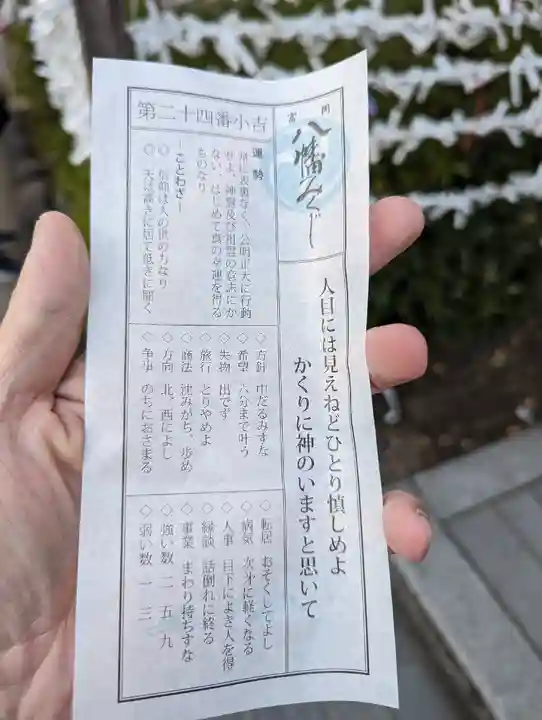 富岡
八幡みくじ
人目には見えねどひとり慎しめよ
かくりに神のいますと思いて
第二十四番小吉
運勢
常に表裏なく、公明正大に行動
せよ、神霊及び祖霊の意志にか
ない、はじめて真の幸運を得る
ものなり
―ことわざ―
◎ 信仰は人の世のちなり
◎ 天は高きに居て低きに聞く
◇方針 中だるみすな
◇希望 六分まで叶う
◇失物 出でず
◇旅行 とりやめよ
◇商法 沈みがち、歩め
◇方向 北、西によし
◇争事 のちにおさまる
◇転居 おそくしてよし
◇病気 次第に軽くなる
◇人事 目下によき人を得
◇縁談 話倒れに終る
◇事業 まわり持ちすな
◇強い数 二 五 九
◇弱い数 一 三